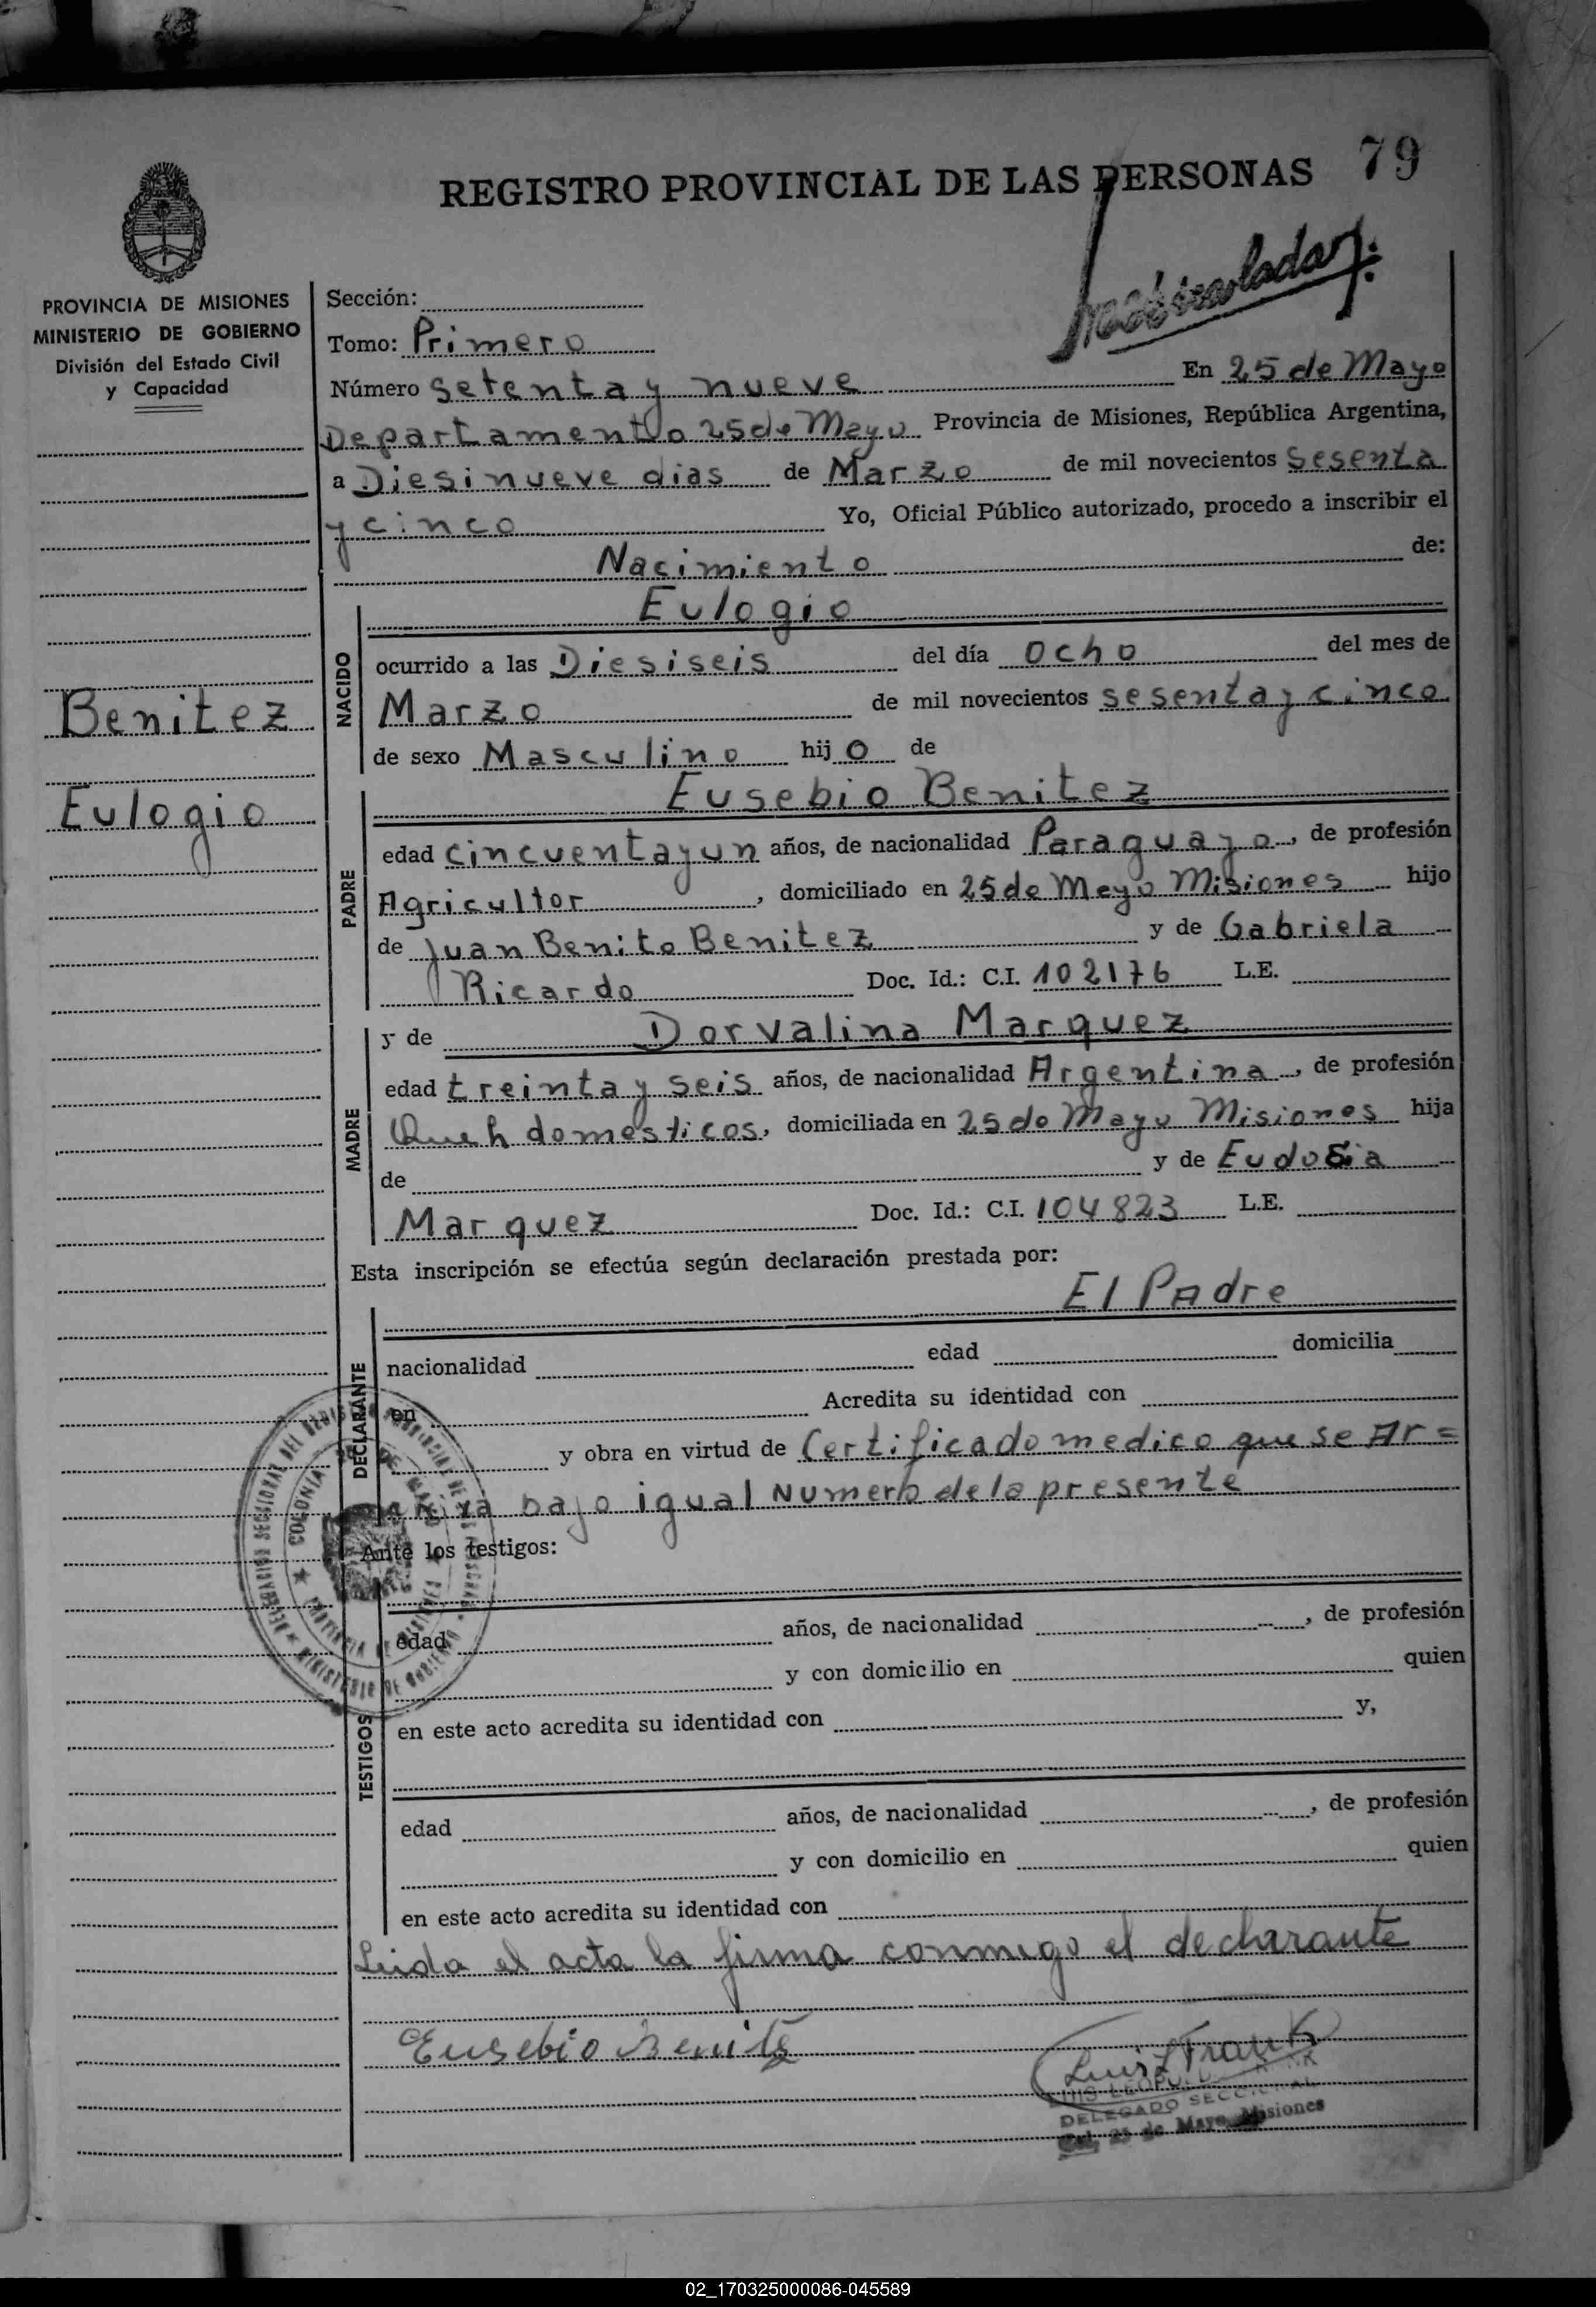 REGISTRO PROVINCIAL DE LAS PERSONAS 79
PROVINCIA DE MISIONES
MINISTERIO DE GOBIERNO
División del Estado Civil
y Capacidad
Benitez
Eulogio
Sección:
Tomo: Primero
Número setenta y nueve En 25 de Mayo
Departamento 25 de Mayo Provincia de Misiones, República Argentina,
a Diesinueve dias de Marzo de mil novecientos sesenta
y cinco Yo, Oficial Público autorizado, procedo a inscribir el
Nacimiento de:
Eulogio
NACIDO
ocurrido a las Diesiseis del día ocho del mes de
Marzo de mil novecientos sesenta y cinco
de sexo Masculino hijo de
Eusebio Benitez
PADRE
edad cincuenta y un años, de nacionalidad Paraguayo, de profesión
Agricultor, domiciliado en 25 de Mayo Misiones hijo
de Juan Benito Benitez y de Gabriela
Ricardo Doc. Id.: C.I. 102176 L.E.
MADRE
y de Dorvalina Marquez
edad treinta y seis años, de nacionalidad Argentina, de profesión
Queh domesticos, domiciliada en 25 de Mayo Misiones hija
de y de Eudosia
Marquez Doc. Id.: C.I. 104823 L.E.
Esta inscripción se efectúa según declaración prestada por:
El Padre
DECLARANTE
nacionalidad edad domicilia
en Acredita su identidad con
y obra en virtud de Certificado medico que se Ar=
bajo igual Numero de la presente
Ante los testigos:
TESTIGOS
edad años, de nacionalidad , de profesión
y con domicilio en quien
en este acto acredita su identidad con y,
edad años, de nacionalidad , de profesión
y con domicilio en quien
en este acto acredita su identidad con
Leida el acta la firma conmigo el declarante
Eusebio Benitez
Luis L Frank
LUIS LEOPOLDO
DELEGADO SECCIONAL
Col. 25 de Mayo Misiones
02_170325000086-045589